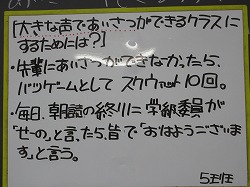 [大きな声であいさつができるクラスに
するためには?]
・先輩にあいさつができなかったら、
バツゲームとして スクワット10回。
・毎日、朝読の終りに学級委員が
"せーの"と言ったら、皆で"おはようございま
す"と言う。
5班